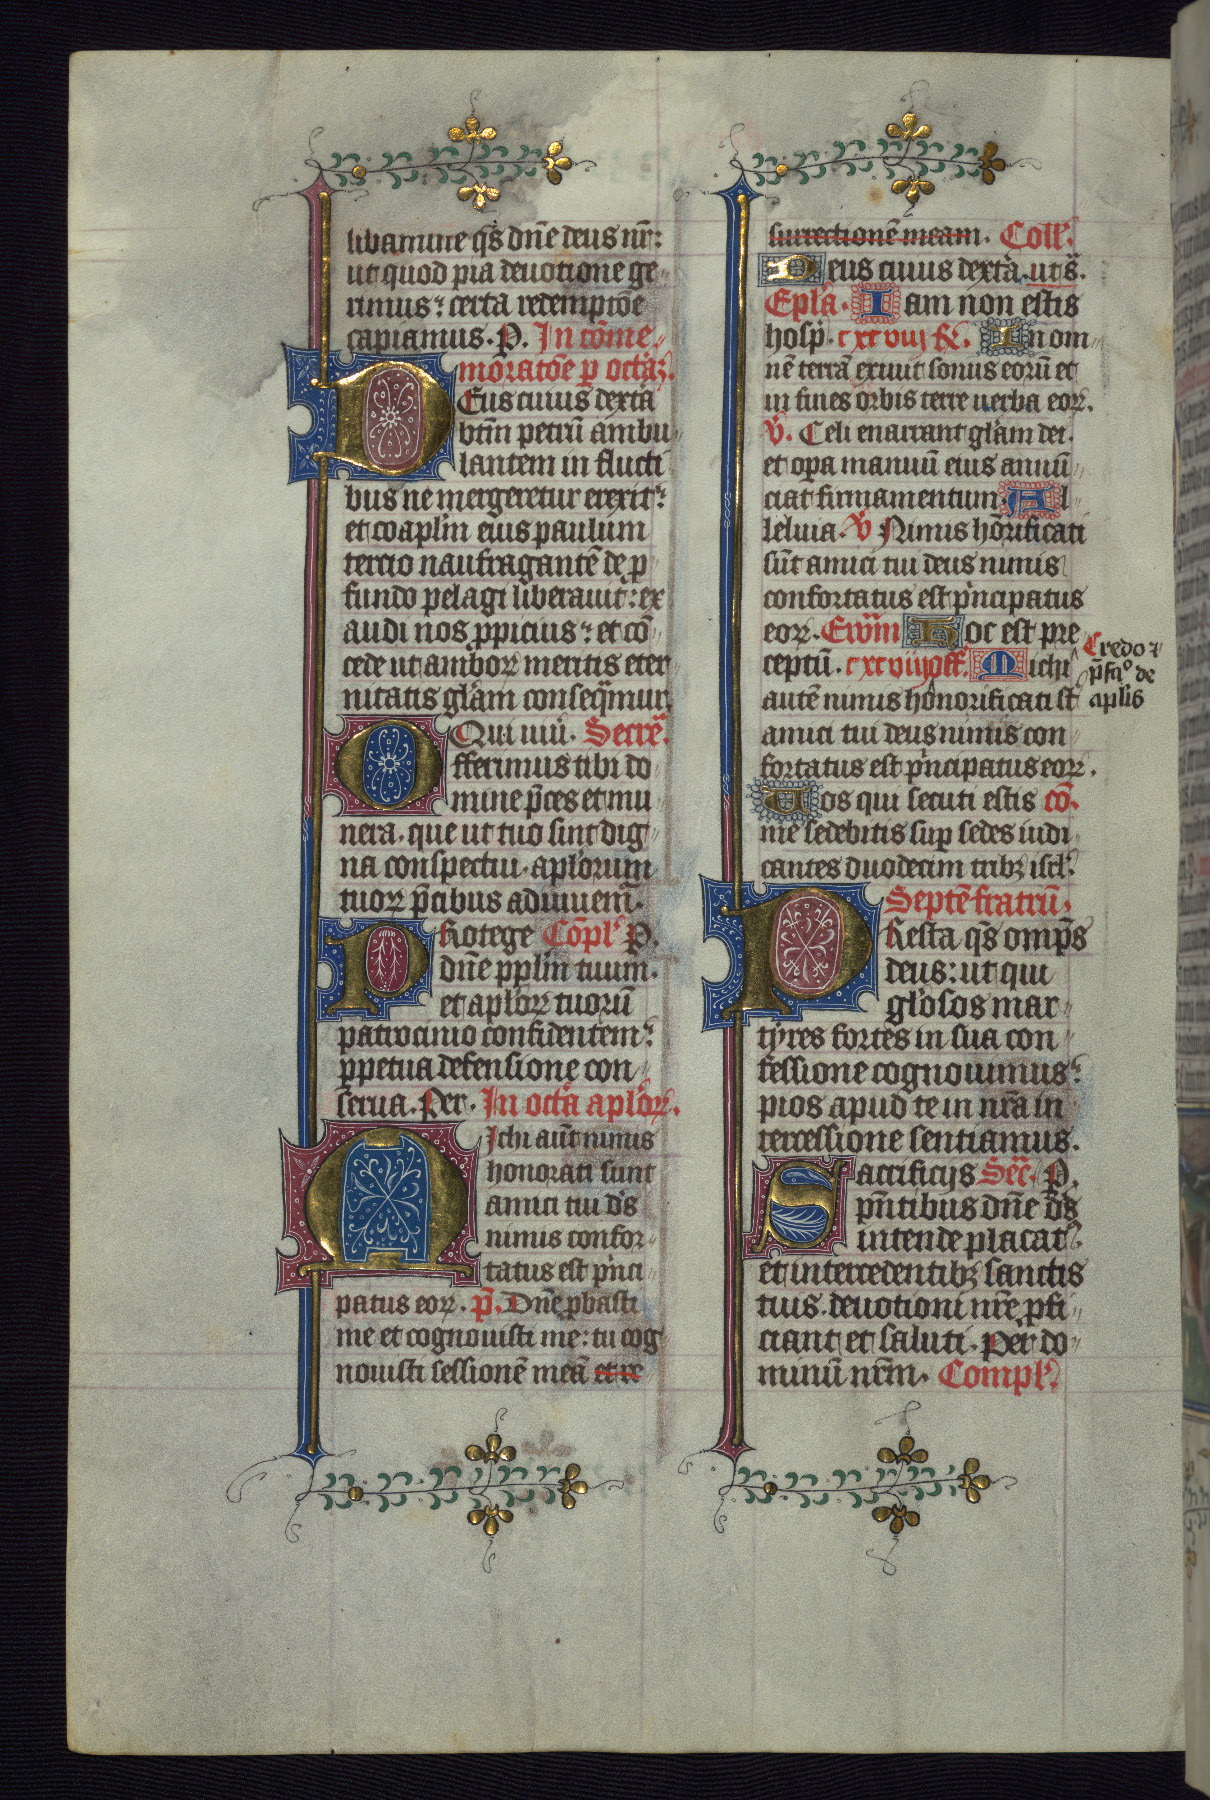 libamine qs̄ dn̄e deus nr̄:
ut quod pia deuotione ge
rimus: certa redemptōe
capiamus. P. In cōme
moratōe p octāꝫ.
Deus cuius dextͣa
btm̄ petrū ambu
lantem in flucti
bus ne mergeretur erexit:
et coaplm̄ eius paulum
tercio naufragantē de ꝓ
fundo pelagi liberauit: ex
audi nos ꝓpicius: et cō
cede ut amboꝝ meritis eter
nitatis gl̄am conseqͣmur
Qui uiu. Secreͣ.
Offerimus tibi do
mine p̄ces et mu
nera. que ut tuo sint dig
na conspectui. aplorum
tuoꝝ p̄cibus adiuuem̄.
Protege Cōpl. P.
dn̄e pplm̄ tuum.
et aploꝝ tuorū
patrocinio confidentem:
ꝑpetua defensione con
serua. Per. In octͣa aploꝝ.
Michi aūt nimis
honorati sunt
amici tui ds̄
nimis confor
tatus est pͥnci
patus eoꝝ. p̄. Dn̄e ꝓbasti
me et cognouisti me: tu cog
nouisti sessionē meā et re
surrectionē meam. Coll.
Deus cuius dextͣa. ut sͣ.
Epl̄a. Iam non estis
hosp̄. cxcviij &c. In om
nē terrā exiuit sonus eorū et
in fines orbis terre uerba eoꝝ.
v̄. Celi enarrant gl̄am dei.
et oꝑa manuū eius annū
ciat firmamentum. Al
leluia. v̄ Nimis honorificati
sūt amici tui deus nimis
confortatus est pͥncipatus
eoꝝ. Ewm̄ Hoc est pre
ceptū. cxcviij off. Michi
autē nimis honorificati st̄
amici tui deus nimis con
fortatus est pͥncipatus eoꝝ.
Uos qui secuti estis cō.
me sedebitis suꝑ sedes iudi
cantes duodecim tribꝫ isrl.
Credo ⁊
p̄fatͦ de
aplis
Septē fratrū.
Presta qs̄ omp̄s
deus: ut qui
glōsos mar
tyres fortes in sua con
fessione cognouimus:
pios apud te in nr̄a in
tercessione sentiamus.
Sacrificijs Secͣ. P.
p̄ntibus dn̄e ds̄
intende placatꝰ.
et intercedentibꝫ sanctis
tuis. deuotioni nr̄e ꝓfi
ciant et saluti. Per do
minū nrm̄. Compl.